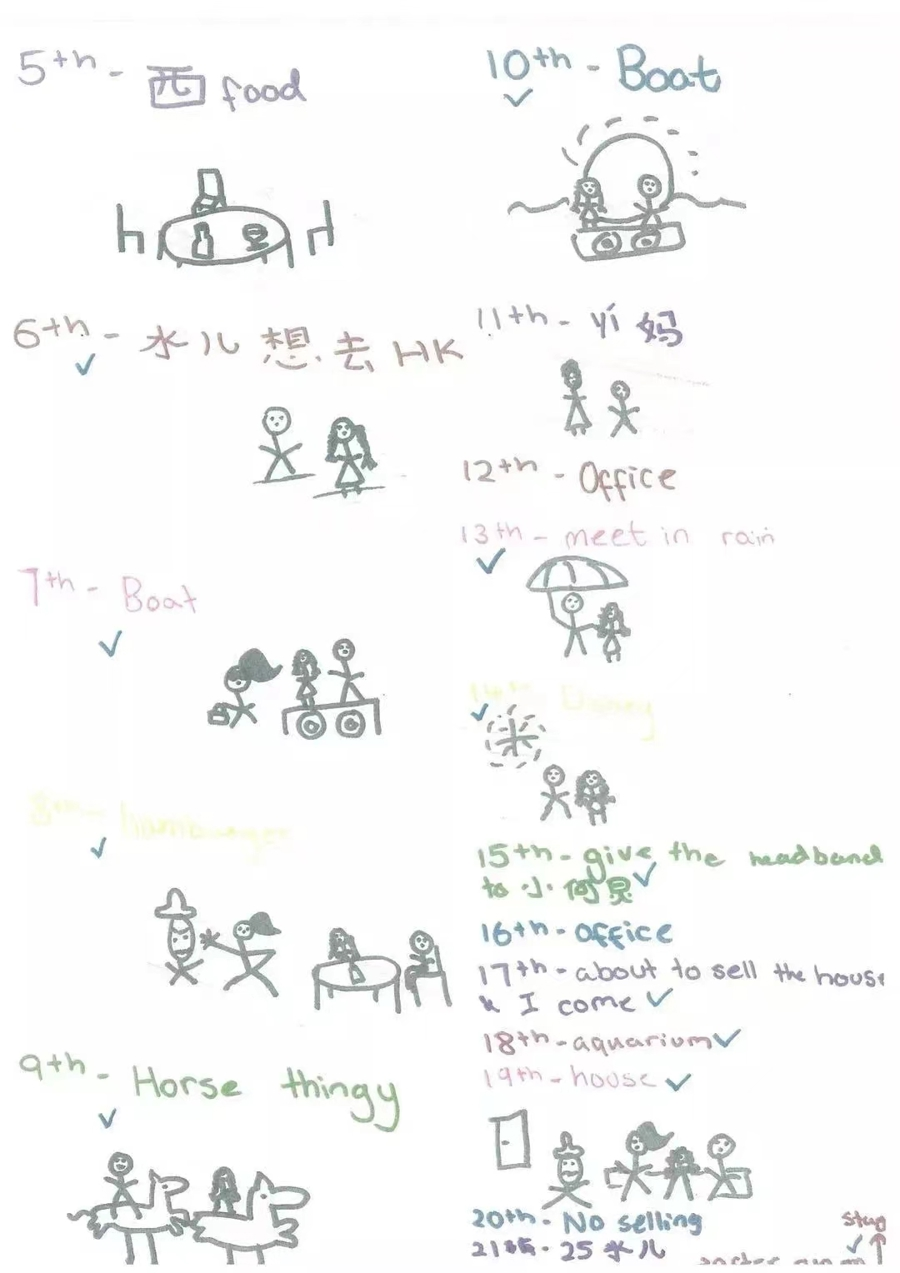 5th - 西 food
6th - 水儿 想 去 HK
7th - Boat
8th - hamburger
9th - Horse thingy
10th - Boat
11th - yí 妈
12th - Office
13th - meet in rain
14th - Disney
15th - give the headband
to 小 何炅
16th - office
17th - about to sell the house
& I come
18th - aquarium
19th - house
20th - No selling
21 - 25 水儿
stay